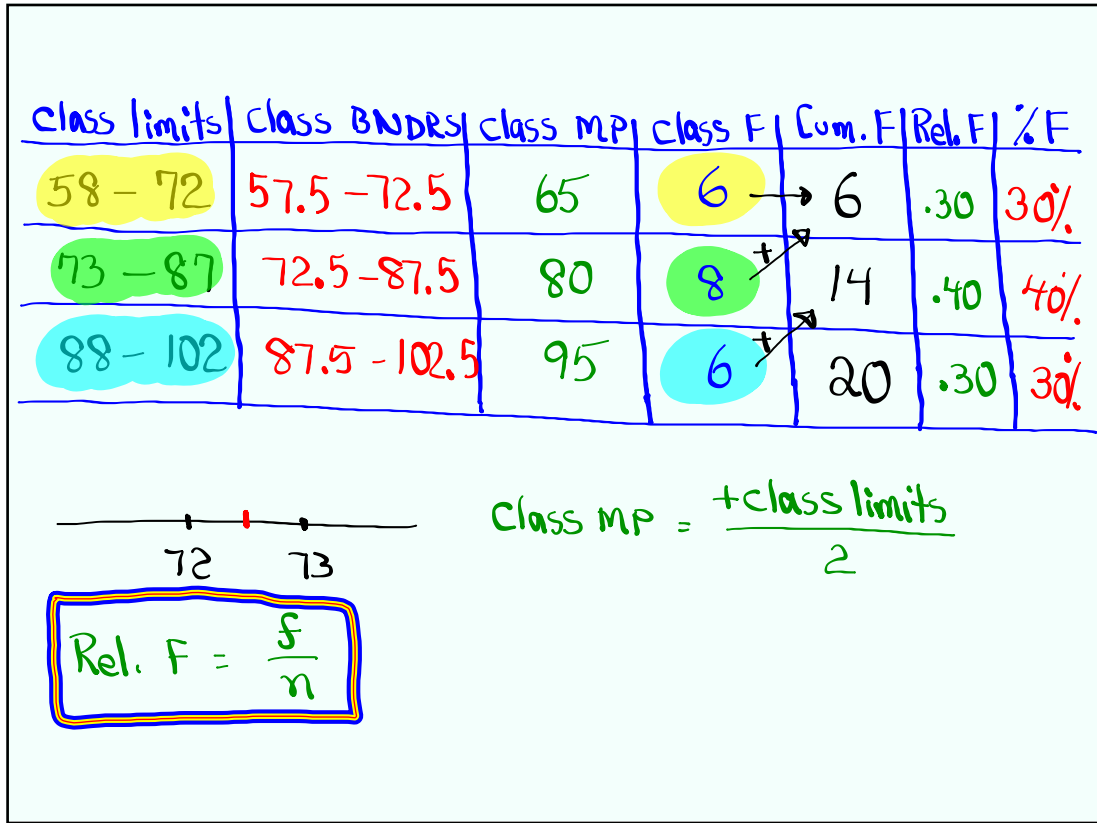 Class limits Class BNDRS Class MP Class F Cum. F Rel. F % F
58 - 72 57.5 - 72.5 65 6 6 .30 30%
73 - 87 72.5 - 87.5 80 8 + 14 .40 40%
88 - 102 87.5 - 102.5 95 6 + 20 .30 30%
Class MP = +class limits / 2
72 73
Rel. F = f / n